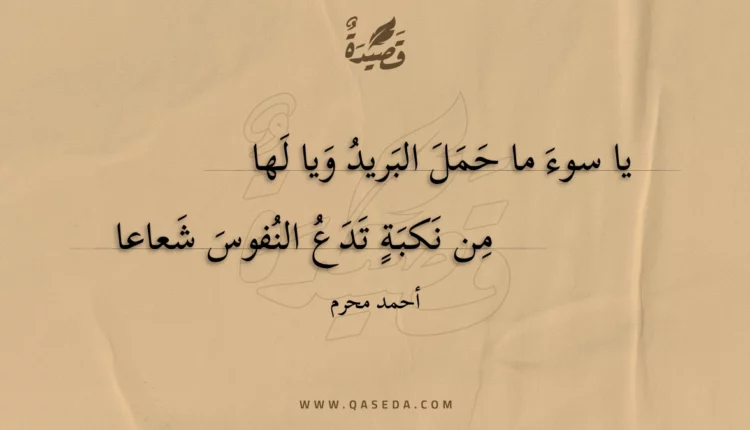 قَصِيدَةٌ
يا سوءَ ما حَمَلَ البَريدُ وَيا لَها
مِن نَكبَةٍ تَدَعُ النُفوسَ شَعاعا
أحمد محرم
WWW.QASEDA.COM